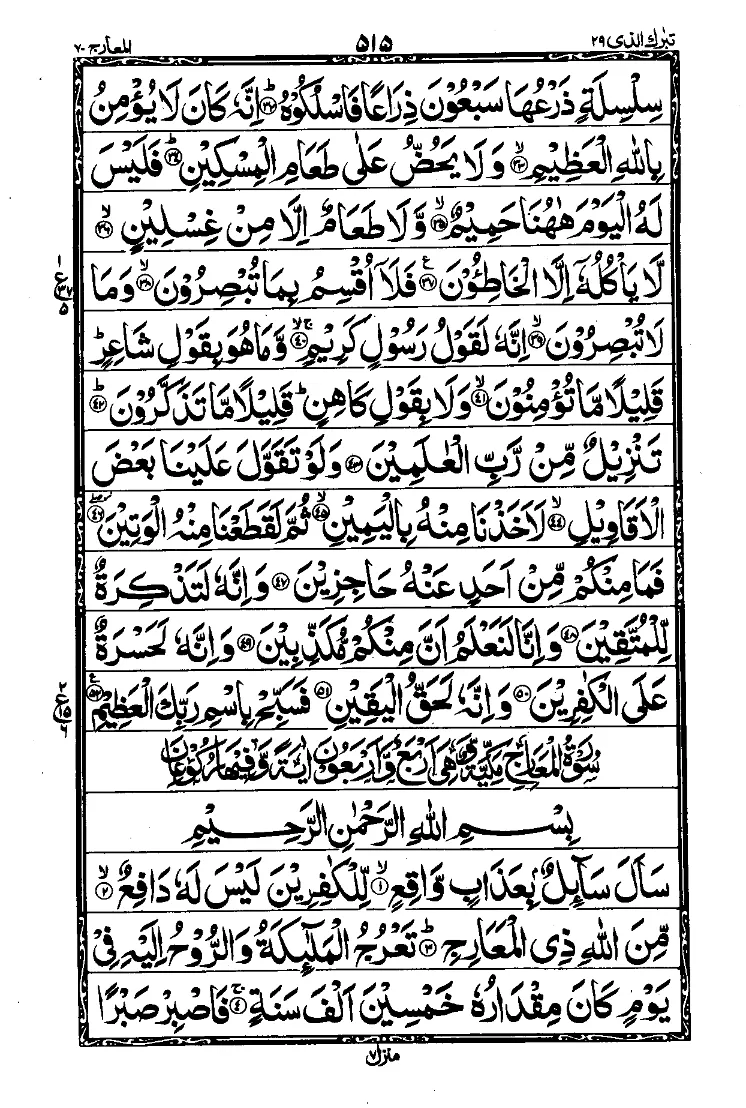 تبٰرك الذی ۲۹ ۵۱۵ المعارج ۷۰
سِلۡسِلَةٍ ذَرۡعُهَا سَبۡعُوۡنَ ذِرَاعًا فَاسۡلُكُوۡهُ ؕ‏﴿۳۲﴾ اِنَّهٗ كَانَ لَا يُؤۡمِنُ
بِاللّٰهِ الۡعَظِيۡمِۙ‏﴿۳۳﴾ وَلَا يَحُضُّ عَلٰى طَعَامِ الۡمِسۡكِيۡنِؕ‏﴿۳۴﴾ فَلَيۡسَ
لَهُ الۡيَوۡمَ هٰهُنَا حَمِيۡمٌۙ‏﴿۳۵﴾ وَّلَا طَعَامٌ اِلَّا مِنۡ غِسۡلِيۡنٍۙ‏﴿۳۶﴾
لَّا يَاۡكُلُهٗۤ اِلَّا الۡخٰطِـُٔوۡنَ‏﴿۳۷﴾ فَلَاۤ اُقۡسِمُ بِمَا تُبۡصِرُوۡنَۙ‏﴿۳۸﴾ وَمَا
لَا تُبۡصِرُوۡنَۙ‏﴿۳۹﴾ اِنَّهٗ لَقَوۡلُ رَسُوۡلٍ كَرِيۡمٍۚ ۙ‏﴿۴۰﴾ وَّمَا هُوَ بِقَوۡلِ شَاعِرٍ‌ؕ
قَلِيۡلًا مَّا تُؤۡمِنُوۡنَۙ‏﴿۴۱﴾ وَلَا بِقَوۡلِ كَاهِنٍ‌ؕ قَلِيۡلًا مَّا تَذَكَّرُوۡنَؕ‏﴿۴۲﴾
تَنۡزِيۡلٌ مِّنۡ رَّبِّ الۡعٰلَمِيۡنَ‏﴿۴۳﴾ وَلَوۡ تَقَوَّلَ عَلَيۡنَا بَعۡضَ
الۡاَقَاوِيۡلِۙ‏﴿۴۴﴾ لَاَخَذۡنَا مِنۡهُ بِالۡيَمِيۡنِۙ‏﴿۴۵﴾ ثُمَّ لَقَطَعۡنَا مِنۡهُ الۡوَتِيۡنَ‏﴿۴۶﴾
فَمَا مِنۡكُمۡ مِّنۡ اَحَدٍ عَنۡهُ حَاجِزِيۡنَ‏﴿۴۷﴾ وَاِنَّهٗ لَتَذۡكِرَةٌ
لِّلۡمُتَّقِيۡنَ‏﴿۴۸﴾ وَاِنَّا لَنَعۡلَمُ اَنَّ مِنۡكُمۡ مُّكَذِّبِيۡنَ‏﴿۴۹﴾ وَاِنَّهٗ لَحَسۡرَةٌ
عَلَى الۡكٰفِرِيۡنَ‏﴿۵۰﴾ وَاِنَّهٗ لَحَـقُّ الۡيَقِيۡنِ‏﴿۵۱﴾ فَسَبِّحۡ بِاسۡمِ رَبِّكَ الۡعَظِيۡمِ‏﴿۵۲﴾
سُوۡرَةُ الۡمَعَارِجِ مَكِّيَّةٌ وَّهِیَ اَرۡبَعٌ وَّاَرۡبَعُوۡنَ اٰيَةً وَّفِيۡهَا رُكُوۡعَانِ
بِسۡمِ اللّٰهِ الرَّحۡمٰنِ الرَّحِيۡمِ
سَاَلَ سَآٮِٕلٌۢ بِعَذَابٍ وَّاقِعٍۙ‏﴿۱﴾ لِّلۡكٰفِرِيۡنَ لَيۡسَ لَهٗ دَافِعٌۙ‏﴿۲﴾
مِّنَ اللّٰهِ ذِى الۡمَعَارِجِؕ‏﴿۳﴾ تَعۡرُجُ الۡمَلٰٓٮِٕكَةُ وَالرُّوۡحُ اِلَيۡهِ فِىۡ
يَوۡمٍ كَانَ مِقۡدَارُهٗ خَمۡسِيۡنَ اَلۡفَ سَنَةٍ‌ۚ‏﴿۴﴾ فَاصۡبِرۡ صَبۡرًا
منزل ۷